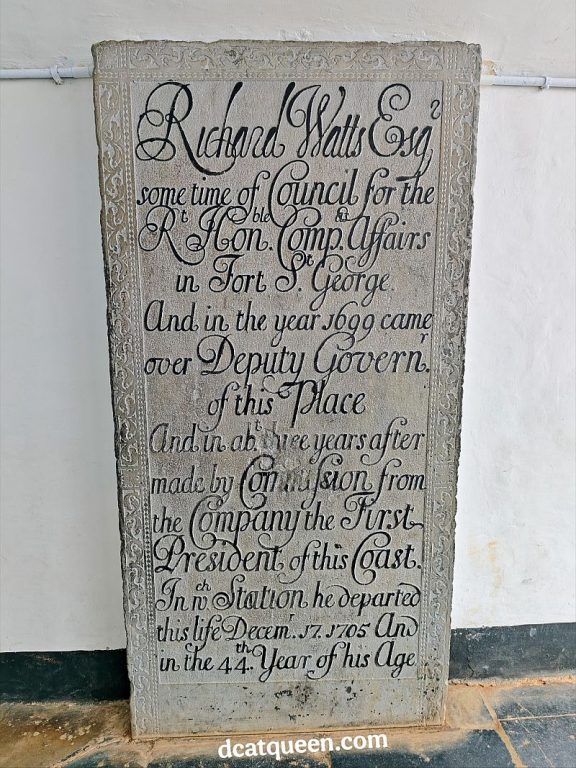 Richard Watts Esqr
some time of Council for the
Rt Honble Compas Affairs
in Fort St George.
And in the year 1699 came
over Deputy Governr.
of this Place
And in abt. three years after
made by Commission from
the Company the First
President of this Coast.
In wch Station he departed
this life Decemr. 17. 1705 And
in the 44th. Year of his Age
dcatqueen.com